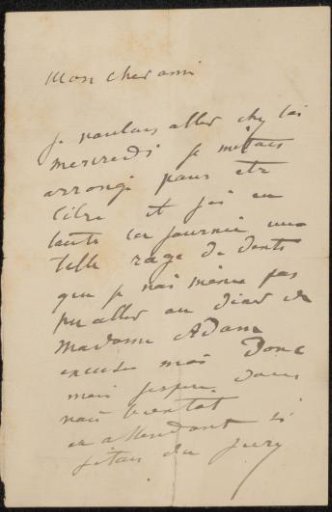 Mon cher ami
je voulais aller chez toi
mercredi je m'étais
arrangé pour etre
libre et j'ai eu
toute la journée une
telle rage de dents
que je n'ai même pas
pu aller au diner de
Madame Adam
excuse moi Donc
mais j'espère
bientot
en attendant si
j'étais du jury